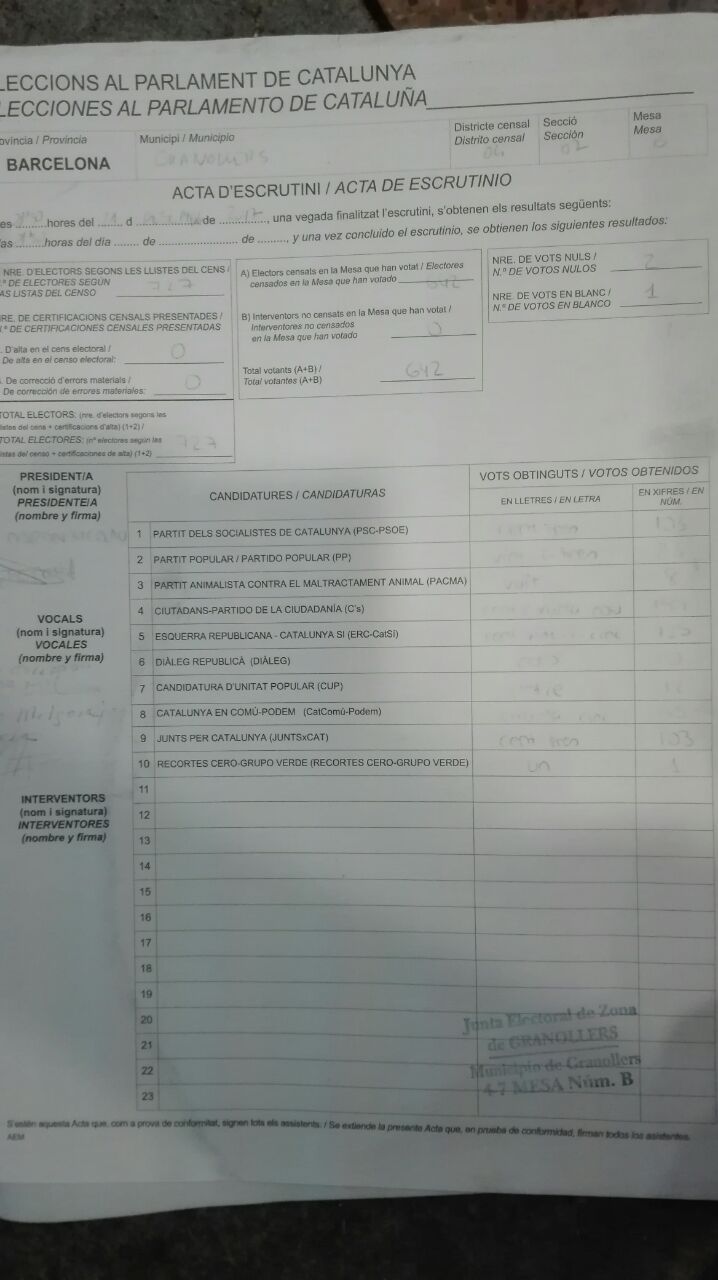 LECCIONS AL PARLAMENT DE CATALUNYA
LECCIONES AL PARLAMENTO DE CATALUÑA
ovíncia / Provincia
BARCELONA
Municipi / Municipio
GRANOLLERS
Districte censal
Distrito censal
Secció
Sección
02
Mesa
Mesa
ACTA D'ESCRUTINI / ACTA DE ESCRUTINIO
es hores del d de , una vegada finalitzat l'escrutini, s'obtenen els resultats següents:
las horas del día de de , y una vez concluido el escrutinio, se obtienen los siguientes resultados:
NRE. D'ELECTORS SEGONS LES LLISTES DEL CENS /
N.º DE ELECTORES SEGÚN
AS LISTAS DEL CENSO 727
NRE. DE CERTIFICACIONS CENSALS PRESENTADES /
N.º DE CERTIFICACIONES CENSALES PRESENTADAS
. D'alta en el cens electoral /
De alta en el censo electoral: 0
. De correcció d'errors materials /
De corrección de errores materiales: 0
TOTAL ELECTORS: (nre. d'electors segons les
listes del cens + certificacions d'alta) (1+2) /
TOTAL ELECTORES: (nº electores según las
listas del censo + certificaciones de alta) (1+2) 727
A) Electors censats en la Mesa que han votat / Electores
censados en la Mesa que han votado 642
B) Interventors no censats en la Mesa que han votat /
Interventores no censados
en la Mesa que han votado 0
Total votants (A+B) /
Total votantes (A+B) 642
NRE. DE VOTS NULS /
N.º DE VOTOS NULOS 2
NRE. DE VOTS EN BLANC /
N.º DE VOTOS EN BLANCO 1
PRESIDENT/A
(nom i signatura)
PRESIDENTE/A
(nombre y firma)
VOCALS
(nom i signatura)
VOCALES
(nombre y firma)
INTERVENTORS
(nom i signatura)
INTERVENTORES
(nombre y firma)
CANDIDATURES / CANDIDATURAS
VOTS OBTINGUTS / VOTOS OBTENIDOS
EN LLETRES / EN LETRA
EN XIFRES / EN
NÚM.
1 PARTIT DELS SOCIALISTES DE CATALUNYA (PSC-PSOE)
2 PARTIT POPULAR / PARTIDO POPULAR (PP)
3 PARTIT ANIMALISTA CONTRA EL MALTRACTAMENT ANIMAL (PACMA) vuit 8
4 CIUTADANS-PARTIDO DE LA CIUDADANÍA (C's)
5 ESQUERRA REPUBLICANA - CATALUNYA SÍ (ERC-CatSí)
6 DIÀLEG REPUBLICÀ (DIÀLEG)
7 CANDIDATURA D'UNITAT POPULAR (CUP)
8 CATALUNYA EN COMÚ-PODEM (CatComú-Podem)
9 JUNTS PER CATALUNYA (JUNTSxCAT) cent tres 103
10 RECORTES CERO-GRUPO VERDE (RECORTES CERO-GRUPO VERDE) un 1
11
12
13
14
15
16
17
18
19
20
21
22
23
Junta Electoral de Zona
de GRANOLLERS
Municipio de Granollers
4-7 MESA Núm. B
S'estén aquesta Acta que, com a prova de conformitat, signen tots els assistents. / Se extiende la presente Acta que, en prueba de conformidad, firman todos los asistentes.
AEM